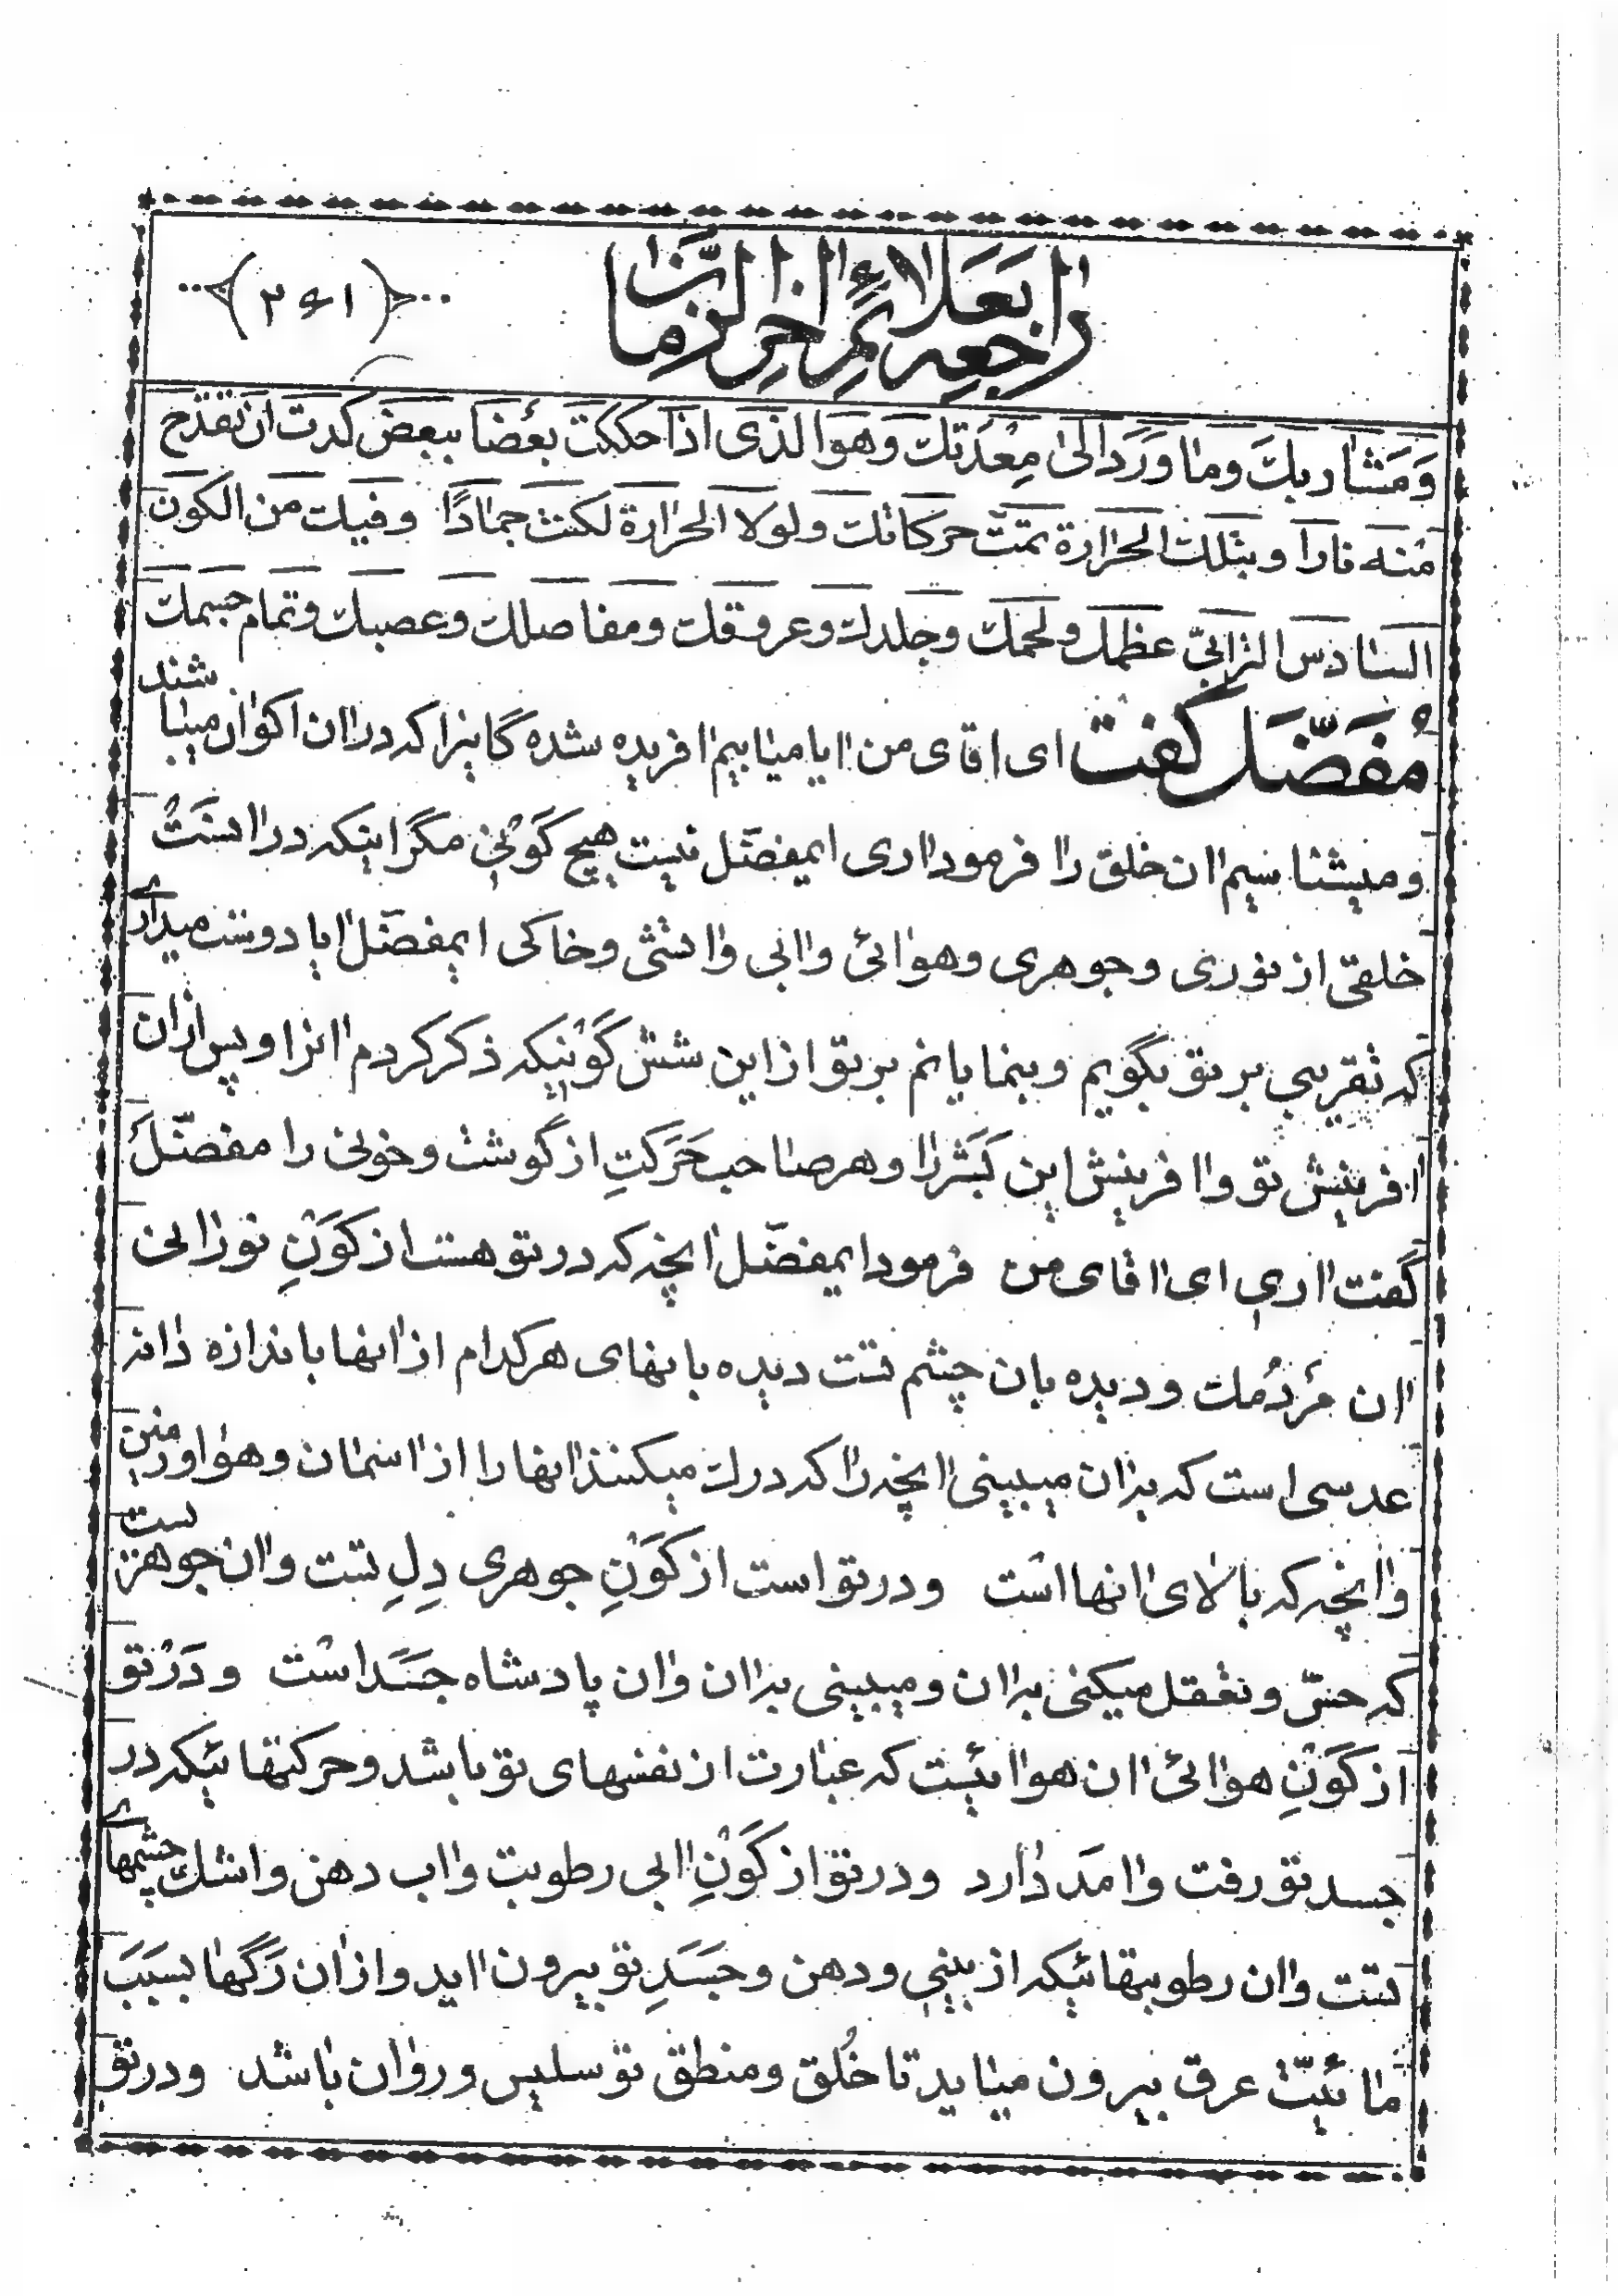 راجعه بعلائم اخر الزمان
(۲۶۱)
وَمَشاربكَ وما وَرَدَ الىٰ مِعْدَتك وَهوَ الذّى اذَا حككتَ بعْضاً ببعض كدت ان تقدح
مْنه نارا وبتلك الحرارة تمّت حركاتك ولولا الحرارة لكنت جماداً وفيك من الكون
السّادس الترابىّ عظمك ولحمك وجلدك وعروقك ومفاصلك وعصبك وتمام جسمك
مُفَضَّل گفت اى اقاى من ايا ميتابيم افريده شده گانيرا كه در ان اكوان ميباشند
وميشناسيم ان خلق را فرمود ارى ايمفضّل نيست هيچ كَوْنى مگر اينكه در اسنَتْ
خلقى از نورى وجوهرى وهوائى وابى واتشى وخاكى ايمفضّل ايا دوست ميدارى
كه تقريبى بر تو بگويم وبنمايانم بر تو از اين شش كَوْنيكه ذكر كردم انرا و پس از ان
افرينش تو وافرينش اين بَشَر را و هر صاحب حَرَكتِ از گوشت و خونى را مفضّل
گفت ارى اى اقاى من فرمود ايمفضّل انچه كه در تو هست از كَوْنِ نورانى
ان مَرْدُمك وديده بان چشم تست ديده بانهاى هر كدام از انها باندازه دانه
عدسى است كه بدان ميبينى انچه را كه درك ميكنند انها را از اسمان وهوا وزمين
وانچه كه بالاى انها است ودر تو است از كَوْنِ جوهرى دِلِ تست وان جوهريست
كه حسّ وتعقل ميكنى بدان وميبينى بدان وان پادشاه جَسَد است ودَرْ تو
از كَوْنِ هوائى ان هوائيست كه عبارت از نفسهاى تو باشد وحركتهائيكه در
جسد تو رفت وامَد دارد ودر تو از كَوْنِ ابى رطوبت واب دهن واشك چشمهاى
تست وان رطوبتهائيكه از بينى ودهن وجَسَدِ تو بيرون ايد و از ان رَگها بسبَبَ
مائيّت عرق بيرون ميايد تا خُلق ومنطق تو سليس وروان باشد ودر تو